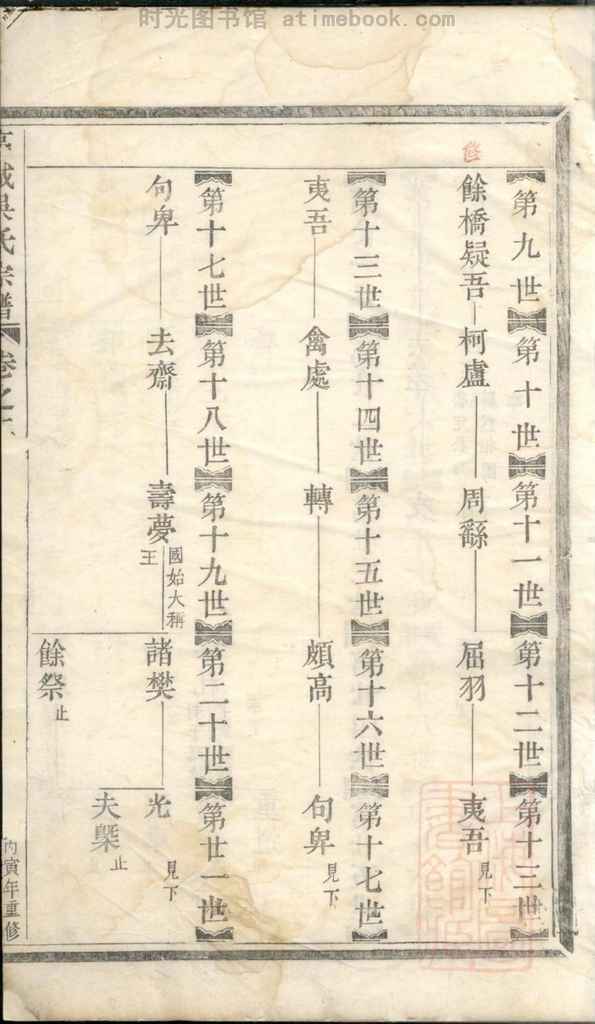 时光图书馆 atimebook.com
第九世 第十世 第十一世 第十二世 第十三世
餘橋疑吾 柯盧 周繇 屈羽 夷吾 見下
第十三世 第十四世 第十五世 第十六世 第十七世
夷吾 禽處 轉 頗高 句卑 見下
第十七世 第十八世 第十九世 第二十世 第廿一世
句卑 去齋 壽夢 國始大稱王 諸樊 光 見下
夫槩 止
餘祭 止
城吳氏宗譜 卷之
丙寅年重修